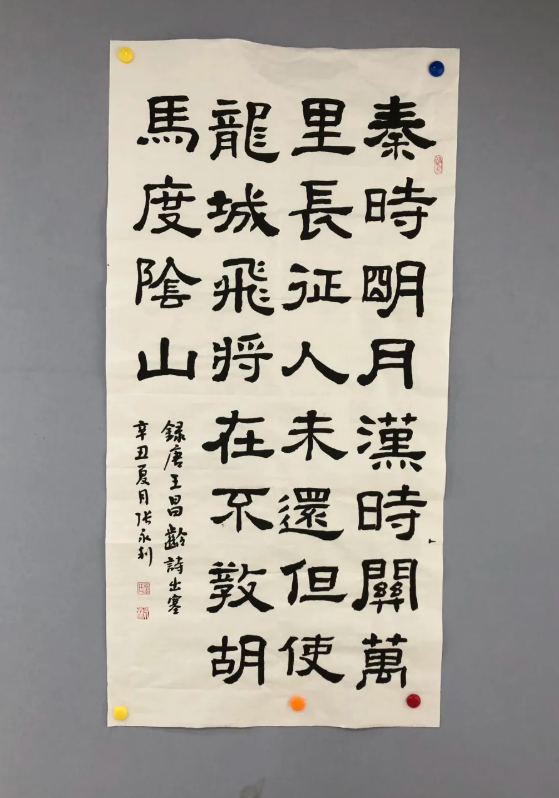 秦時明月漢時關萬
里長征人未還但使
龍城飛將在不敎胡
馬度陰山
録唐王昌齡詩出塞
辛丑夏月張永利